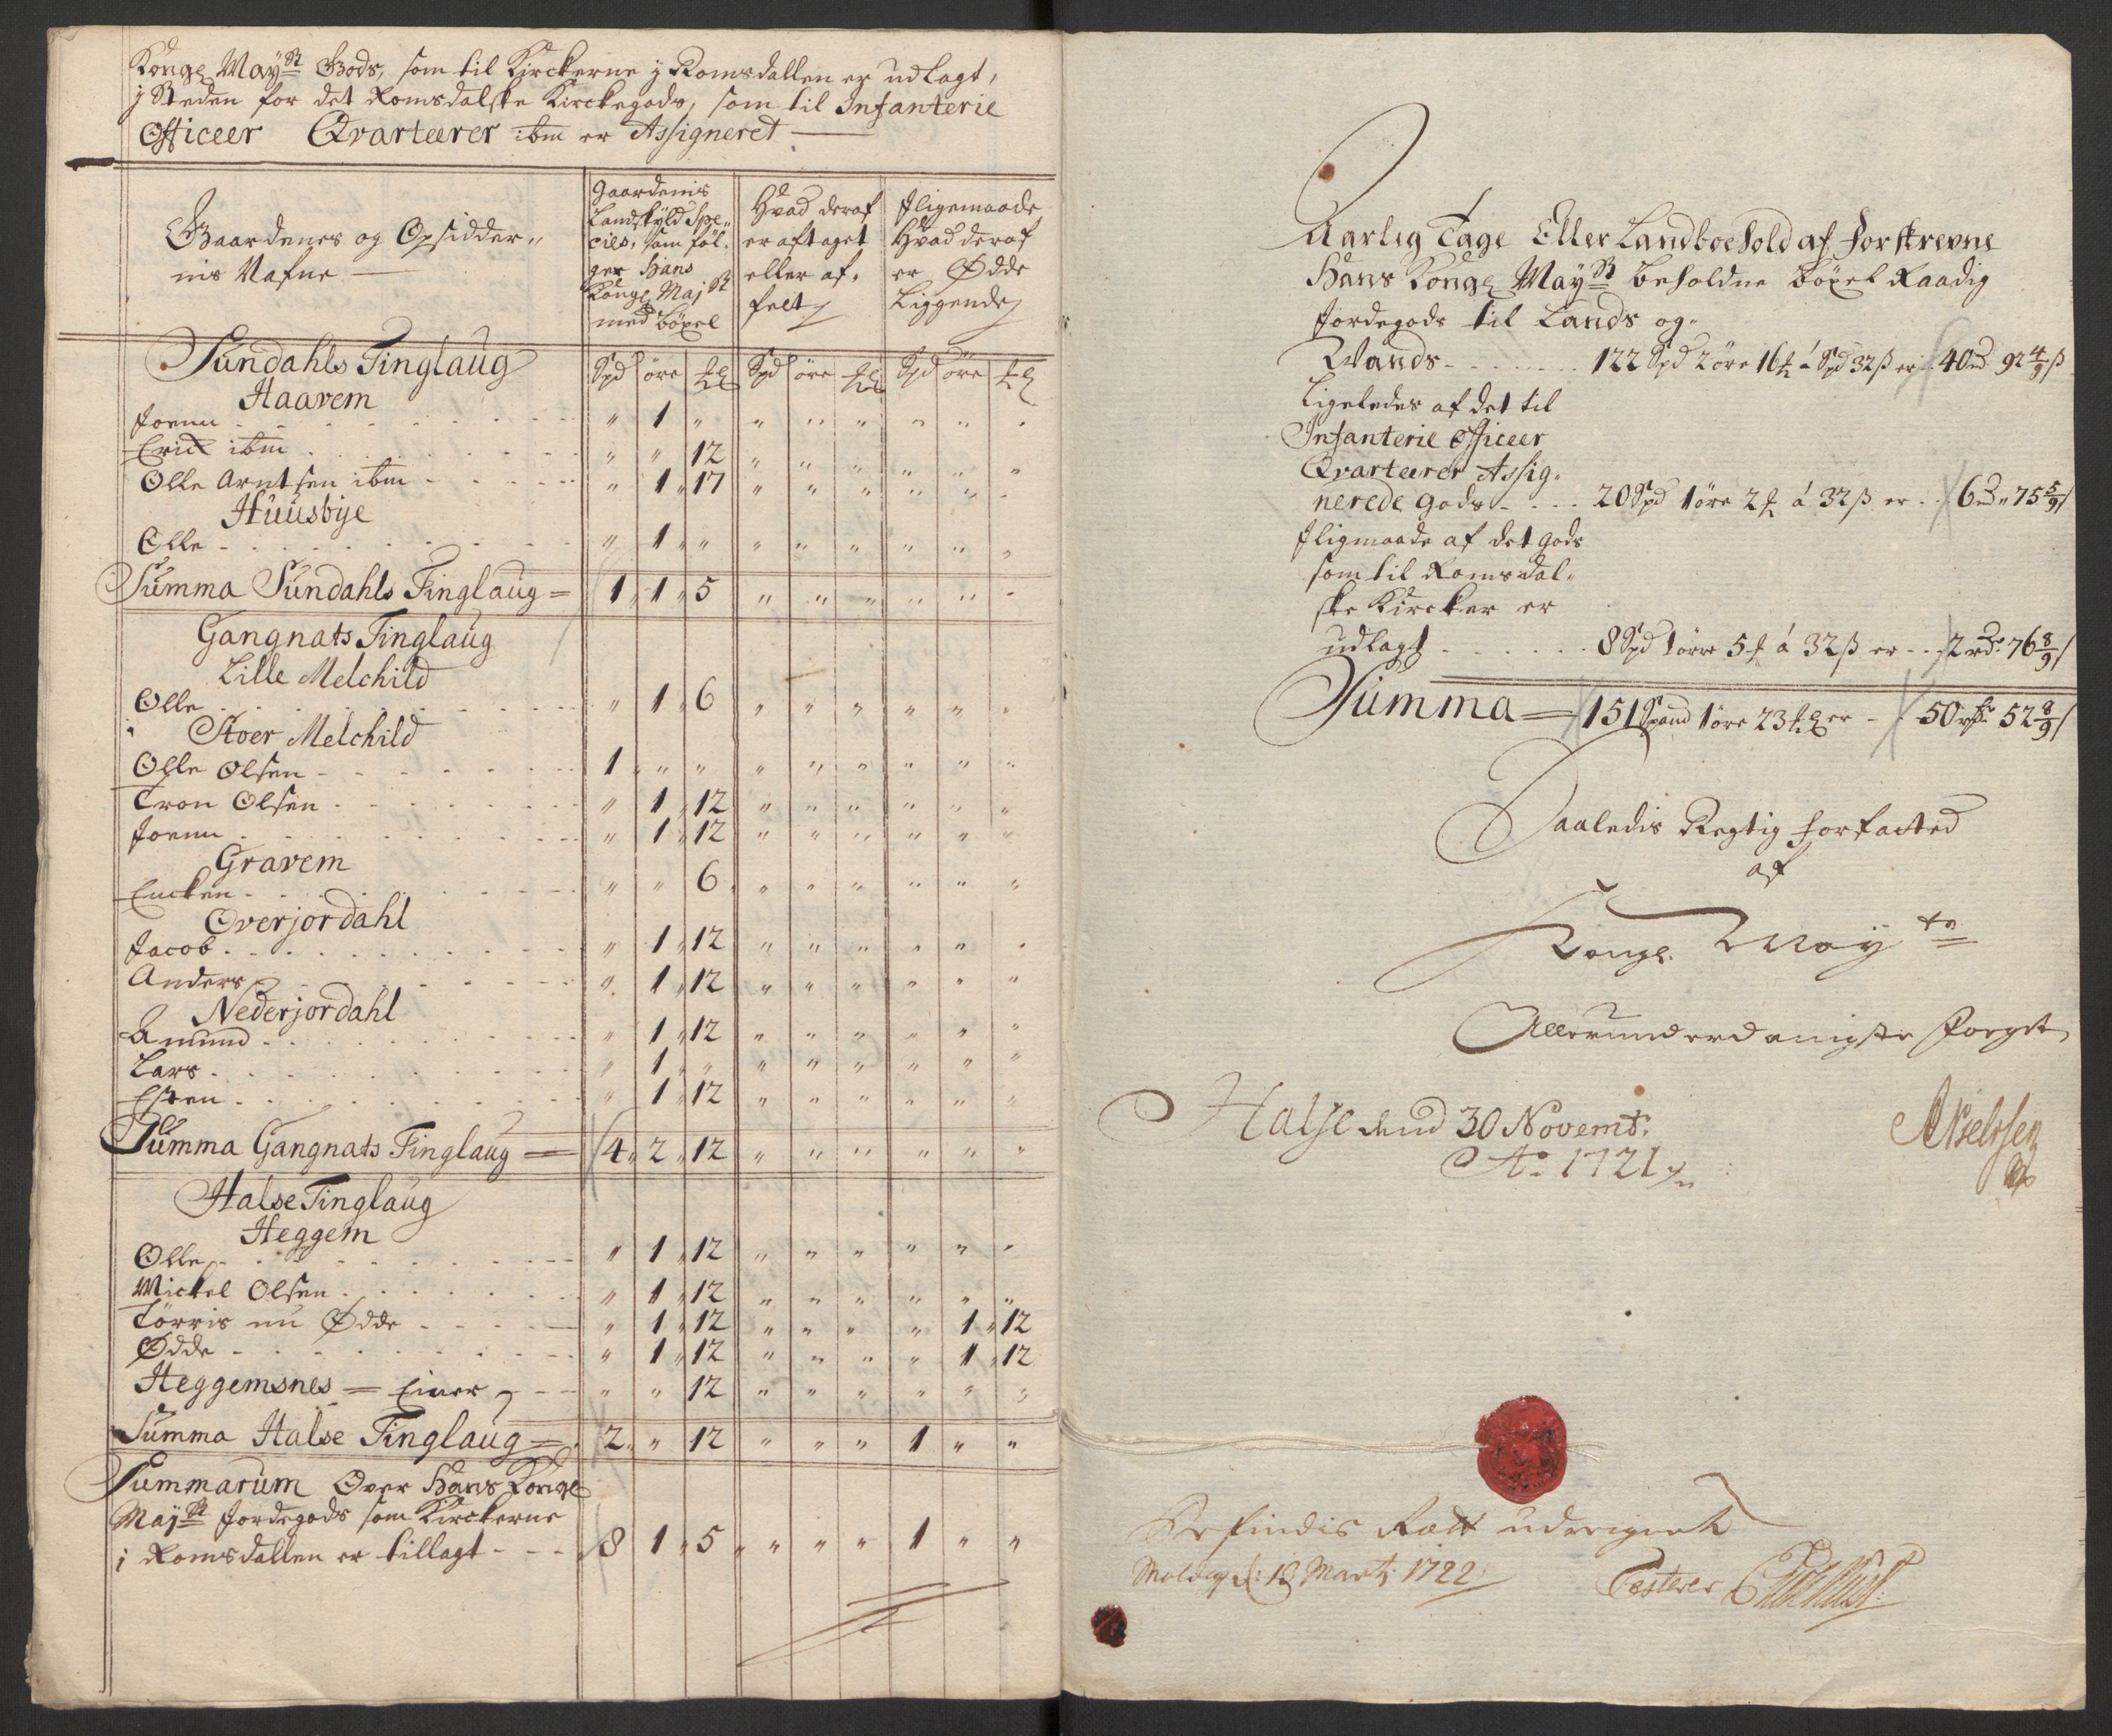 Kongl May.st Gods, som til Kirckerne j Romsdallen er udlagt,
j Steden for det Romsdalske Kirckegods, som til Infanterie
Officeer Qvarteerer ibm er Assigneret
Gaardenes og Opsidder„
nis Nafne
Gaardenis
Landskyld Spe„
cies, som føl„
ger Hans
Kongl Maj.st
med bøxel
Hvad deraf
er aftaget
eller af„
felt
Iligemaade
Hvad deraf
er Ødde
Liggende
Sundahls Tinglaug Spd øre Spd øre Spd øre
Haavem
Joenn „ 1 „ „ „ „ „ „ „
Erick ibm „ „ 12 „ „ „ „ „ „
Olle Arntsen ibm „ 1 „ 17 „ „ „ „ „ „
Huusbye
Olle „ 1 „ „ „ „ „ „ „
Summa Sundahls Tinglaug = 1 „ 1 „ 5 „ „ „ „ „ „
Gangnats Tinglaug
Lille Melchild
Olle „ 1 „ 6 „ „ „ „ „ „
Stoer Melchild
Olle Olsen 1 „ „ „ „ „ „ „ „
Tron Olsen „ 1 „ 12 „ „ „ „ „ „
Joenn „ 1 „ 12 „ „ „ „ „ „
Gravem
Encken „ „ 6 „ „ „ „ „ „
Overjordahl
Jacob „ 1 „ 12 „ „ „ „ „ „
Anders „ 1 „ 12 „ „ „ „ „ „
Nederjordahl
Amund „ 1 „ 12 „ „ „ „ „ „
Lars „ 1 „ „ „ „ „ „ „
Esten „ 1 „ 12 „ „ „ „ „ „
Summa Gangnats Tinglaug = 4 „ 2 „ 12 „ „ „ „ „ „
Halse Tinglaug
Heggem
Olle „ 1 „ 12 „ „ „ „ „ „
Mickel Olsen „ 1 „ 12 „ „ „ „ „ „
Tørris nu Ødde „ 1 „ 12 „ „ „ „ 1 „ 12
Ødde „ 1 „ 12 „ „ „ „ 1 „ 12
Heggemsnes = Einer „ „ 12 „ „ „ „ „ „
Summa Halse Tinglaug = 2 „ „ 12 „ „ „ 1 „ „
Summarum Over Hans Kongl
May.st Jordegods som Kirckerne
i Romsdallen er tillagt 8 1 „ 5 „ „ „ „ 1 „ „
Aarlig Tage Eller Landboehold af forskrevne
Hans Kongl May.st beholdne bøxel Raadig
Jordegods til Lands og
Vands 122 Spd 2 øre 16 á Spd 32 ß er 40 rd 92 4/9 ß
Ligeledes af det til
Infanterie Officeer
Qvarteerer Assig„
nerede gods 20 Spd 1 øre 2 á 32 ß er 6 rd „ 75 5/9 ß
Iligmaade af det gods
som til Romsdal„
ske Kircker er
udlagt 8 Spd 1 øre 5 á 32 ß er 2 rd 76 8/9 ß
Summa = 151 Spand 1 øre 23 er 50 rd 52 8/9 ß
Saaledis Rigtig forfatted
af
Kongl. May.ts
Allerunderdanigste Foget
Halse dend 30 Novemb:
Ao 1721
Befindis Rætt udreignet
Molde d: 18 Marti 1722
Testerer